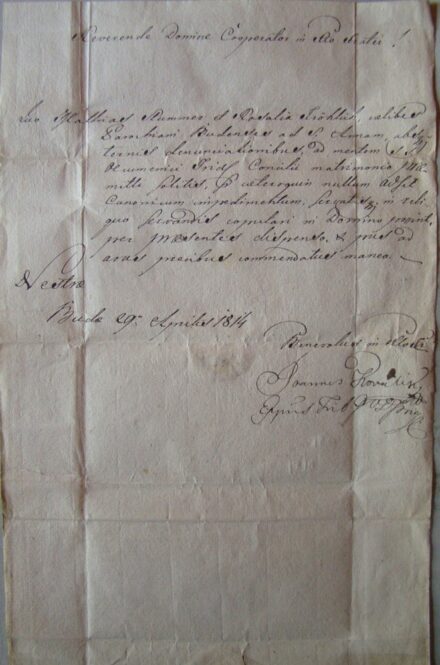 Reverende Domine Cooperator in Xto Frater!
Quo Mathias Rummer et Rosalia Fröhlich, caelibes
Parochiani Budenses ad S. Annam, absq
ternis denunciationibus, ad mentem
Oecumenici Trid. Concilii matrimonio
mitti solitis, si ceteroquin nullum adsit
Canonicum impedimentum, servatis in reli
quo servandis copulari in Domino
per praesentes dispenso. & piis ad
aras precibus commendatus maneo.
Vestrae
Budae 29a Aprilis 1814
Benevolus in Xto
Joannes
Eppus